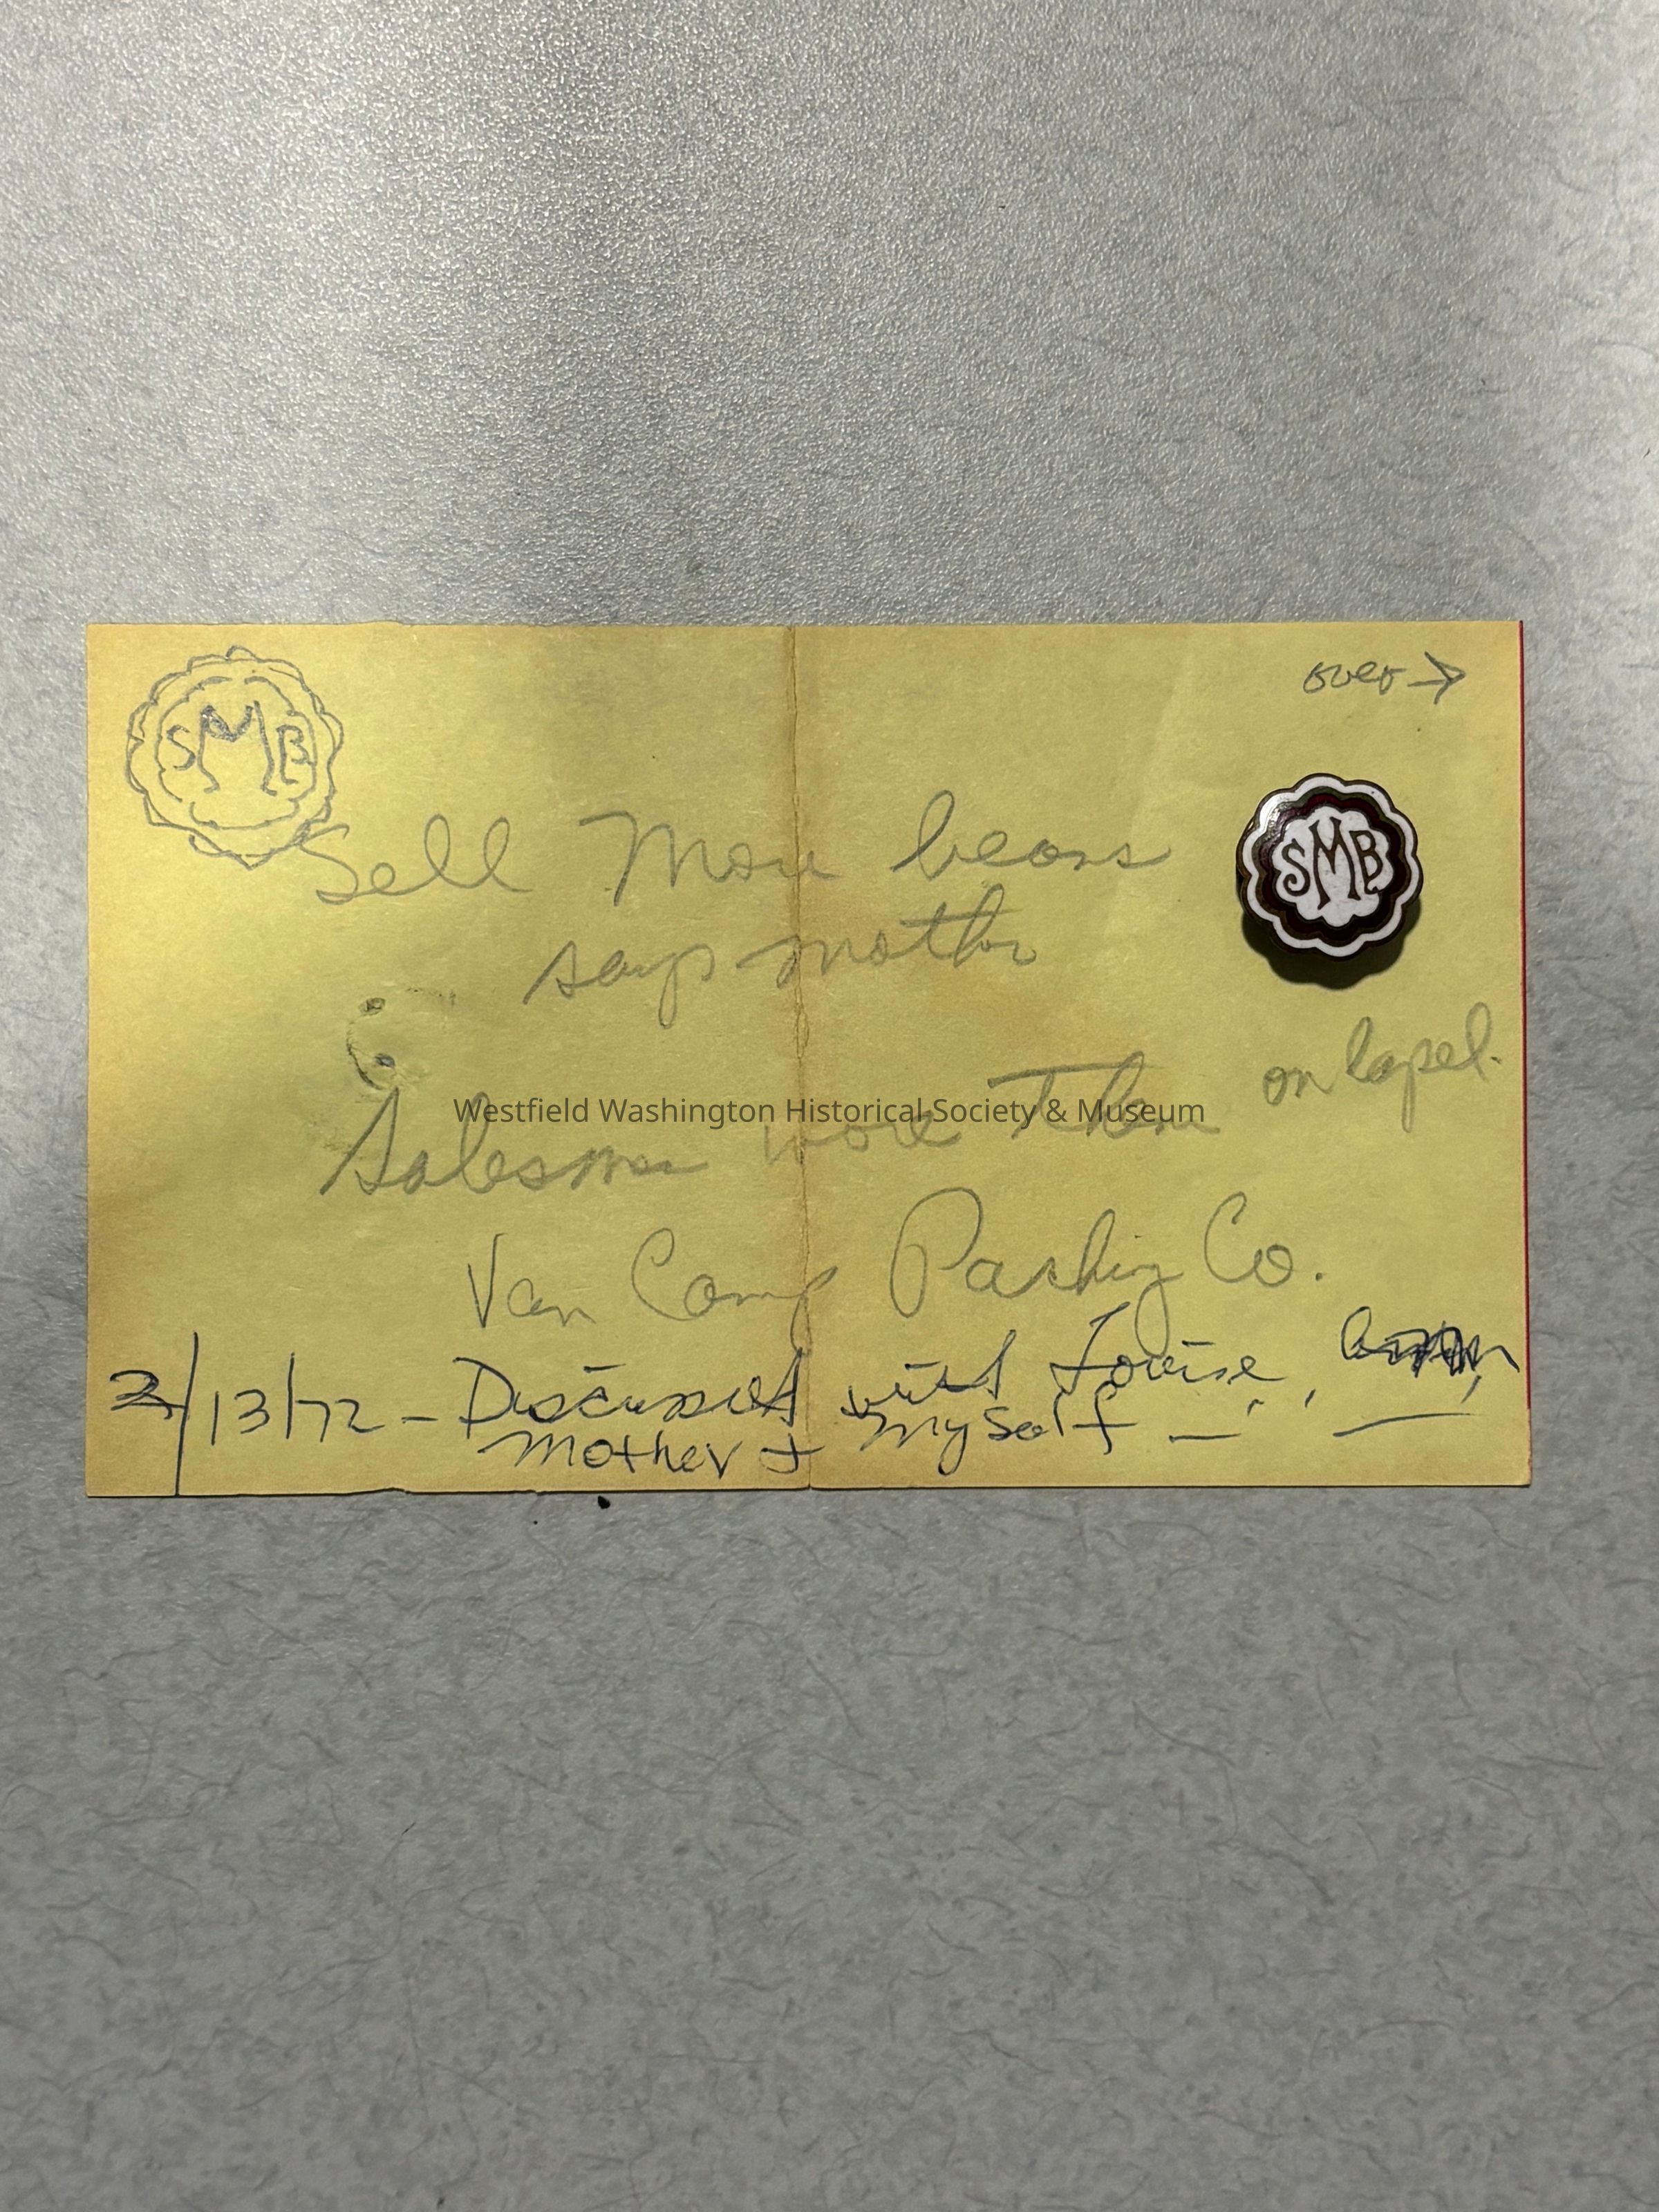 over →
SMB
Sell More beans
SMB
says mother
on lapel.
Salesmen wore them
Westfield Washington Historical Society & Museum
Van Camp Packing Co.
2/13/72 - Discussed with Louise,
Mother + Myself -